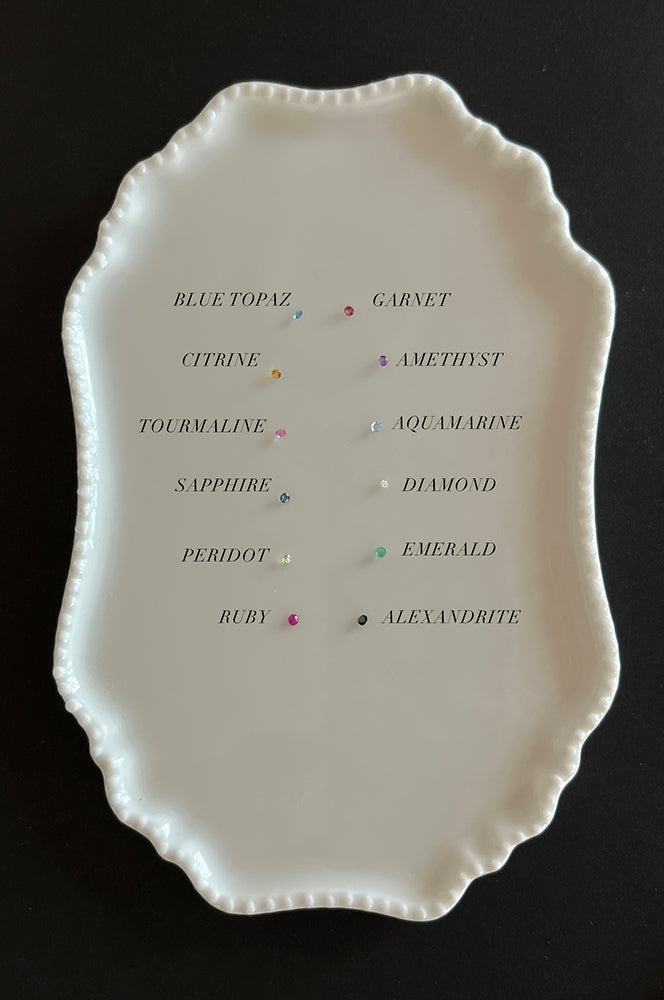 BLUE TOPAZ GARNET
CITRINE AMETHYST
TOURMALINE AQUAMARINE
SAPPHIRE DIAMOND
PERIDOT EMERALD
RUBY ALEXANDRITE